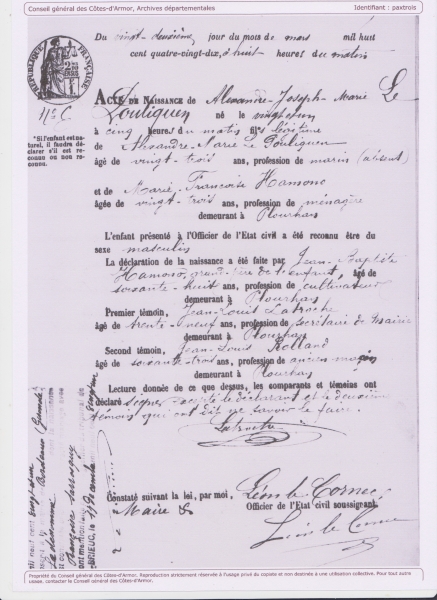 Conseil général des Côtes-d'Armor, Archives départementales
Identifiant : paxtrois
Du vingt-deuxième jour du mois de mars mil huit
cent quatre-vingt-dix, à huit heures du matin
RÉPUBLIQUE FRANÇAISE
N° 6
ACTE DE NAISSANCE de Alexandre-Joseph-Marie Le
Pouliquen né le vingt et un
à cinq heures du matin fils légitime
*Si l'enfant est naturel, il faudra déclarer s'il est reconnu ou non reconnu.
de Alexandre-Marie Le Pouliquen
âgé de vingt-trois ans, profession de marin (absent)
et de Marie-Françoise Hamono
âgée de vingt-trois ans, profession de ménagère
demeurant à Plourhan
L'enfant présenté à l'Officier de l'Etat civil a été reconnu être du
sexe masculin
La déclaration de la naissance a été faite par Jean-Baptiste
Hamono, grand-père de l'enfant, âgé de
soixante-huit ans, profession de cultivateur
demeurant à Plourhan
Premier témoin, Jean-Louis Latroche
âgé de trente-neuf ans, profession de secrétaire de Mairie
demeurant à Plourhan
Second témoin, Jean-Louis Rolland
âgé de soixante-trois ans, profession de ancien maçon
demeurant à Plourhan
Lecture donnée de ce dessus, les comparants et témoins ont
déclaré signer, excepté le déclarant et le deuxième
témoin qui ont dit ne savoir le faire.
Latroche
Constaté suivant la loi, par moi, Léon le Cornec
Maire &
Officier de l'Etat civil soussigné.
Léon le Cornec
Propriété du Conseil général des Côtes-d'Armor. Reproduction strictement réservée à l'usage privé du copiste et non destinée à une utilisation collective. Pour tout autre
usage, contacter le Conseil général des Côtes-d'Armor.